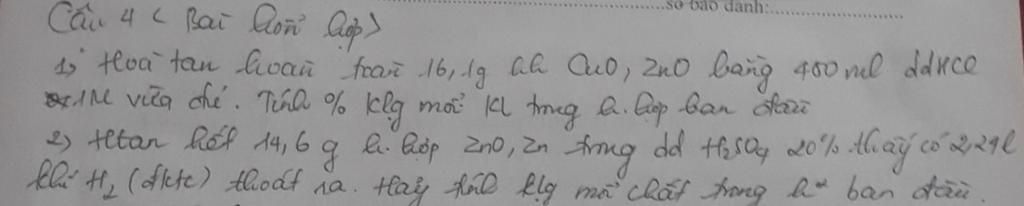 số báo danh:
Câu 4 < Bài hỗn hợp >
1, Hoà tan hoàn toàn 16,1g hh CuO, ZnO bằng 400ml ddHCl
1M vừa đủ. Tính % klg mỗi KL trong h.hợp ban đầu
2, Htan hết 14,6 g h.hợp ZnO, Zn trong dd H₂SO₄ 20% thấy có 2,24l
khí H₂ (đktc) thoát ra. Hãy tính klg mỗi chất trong h² ban đầu.